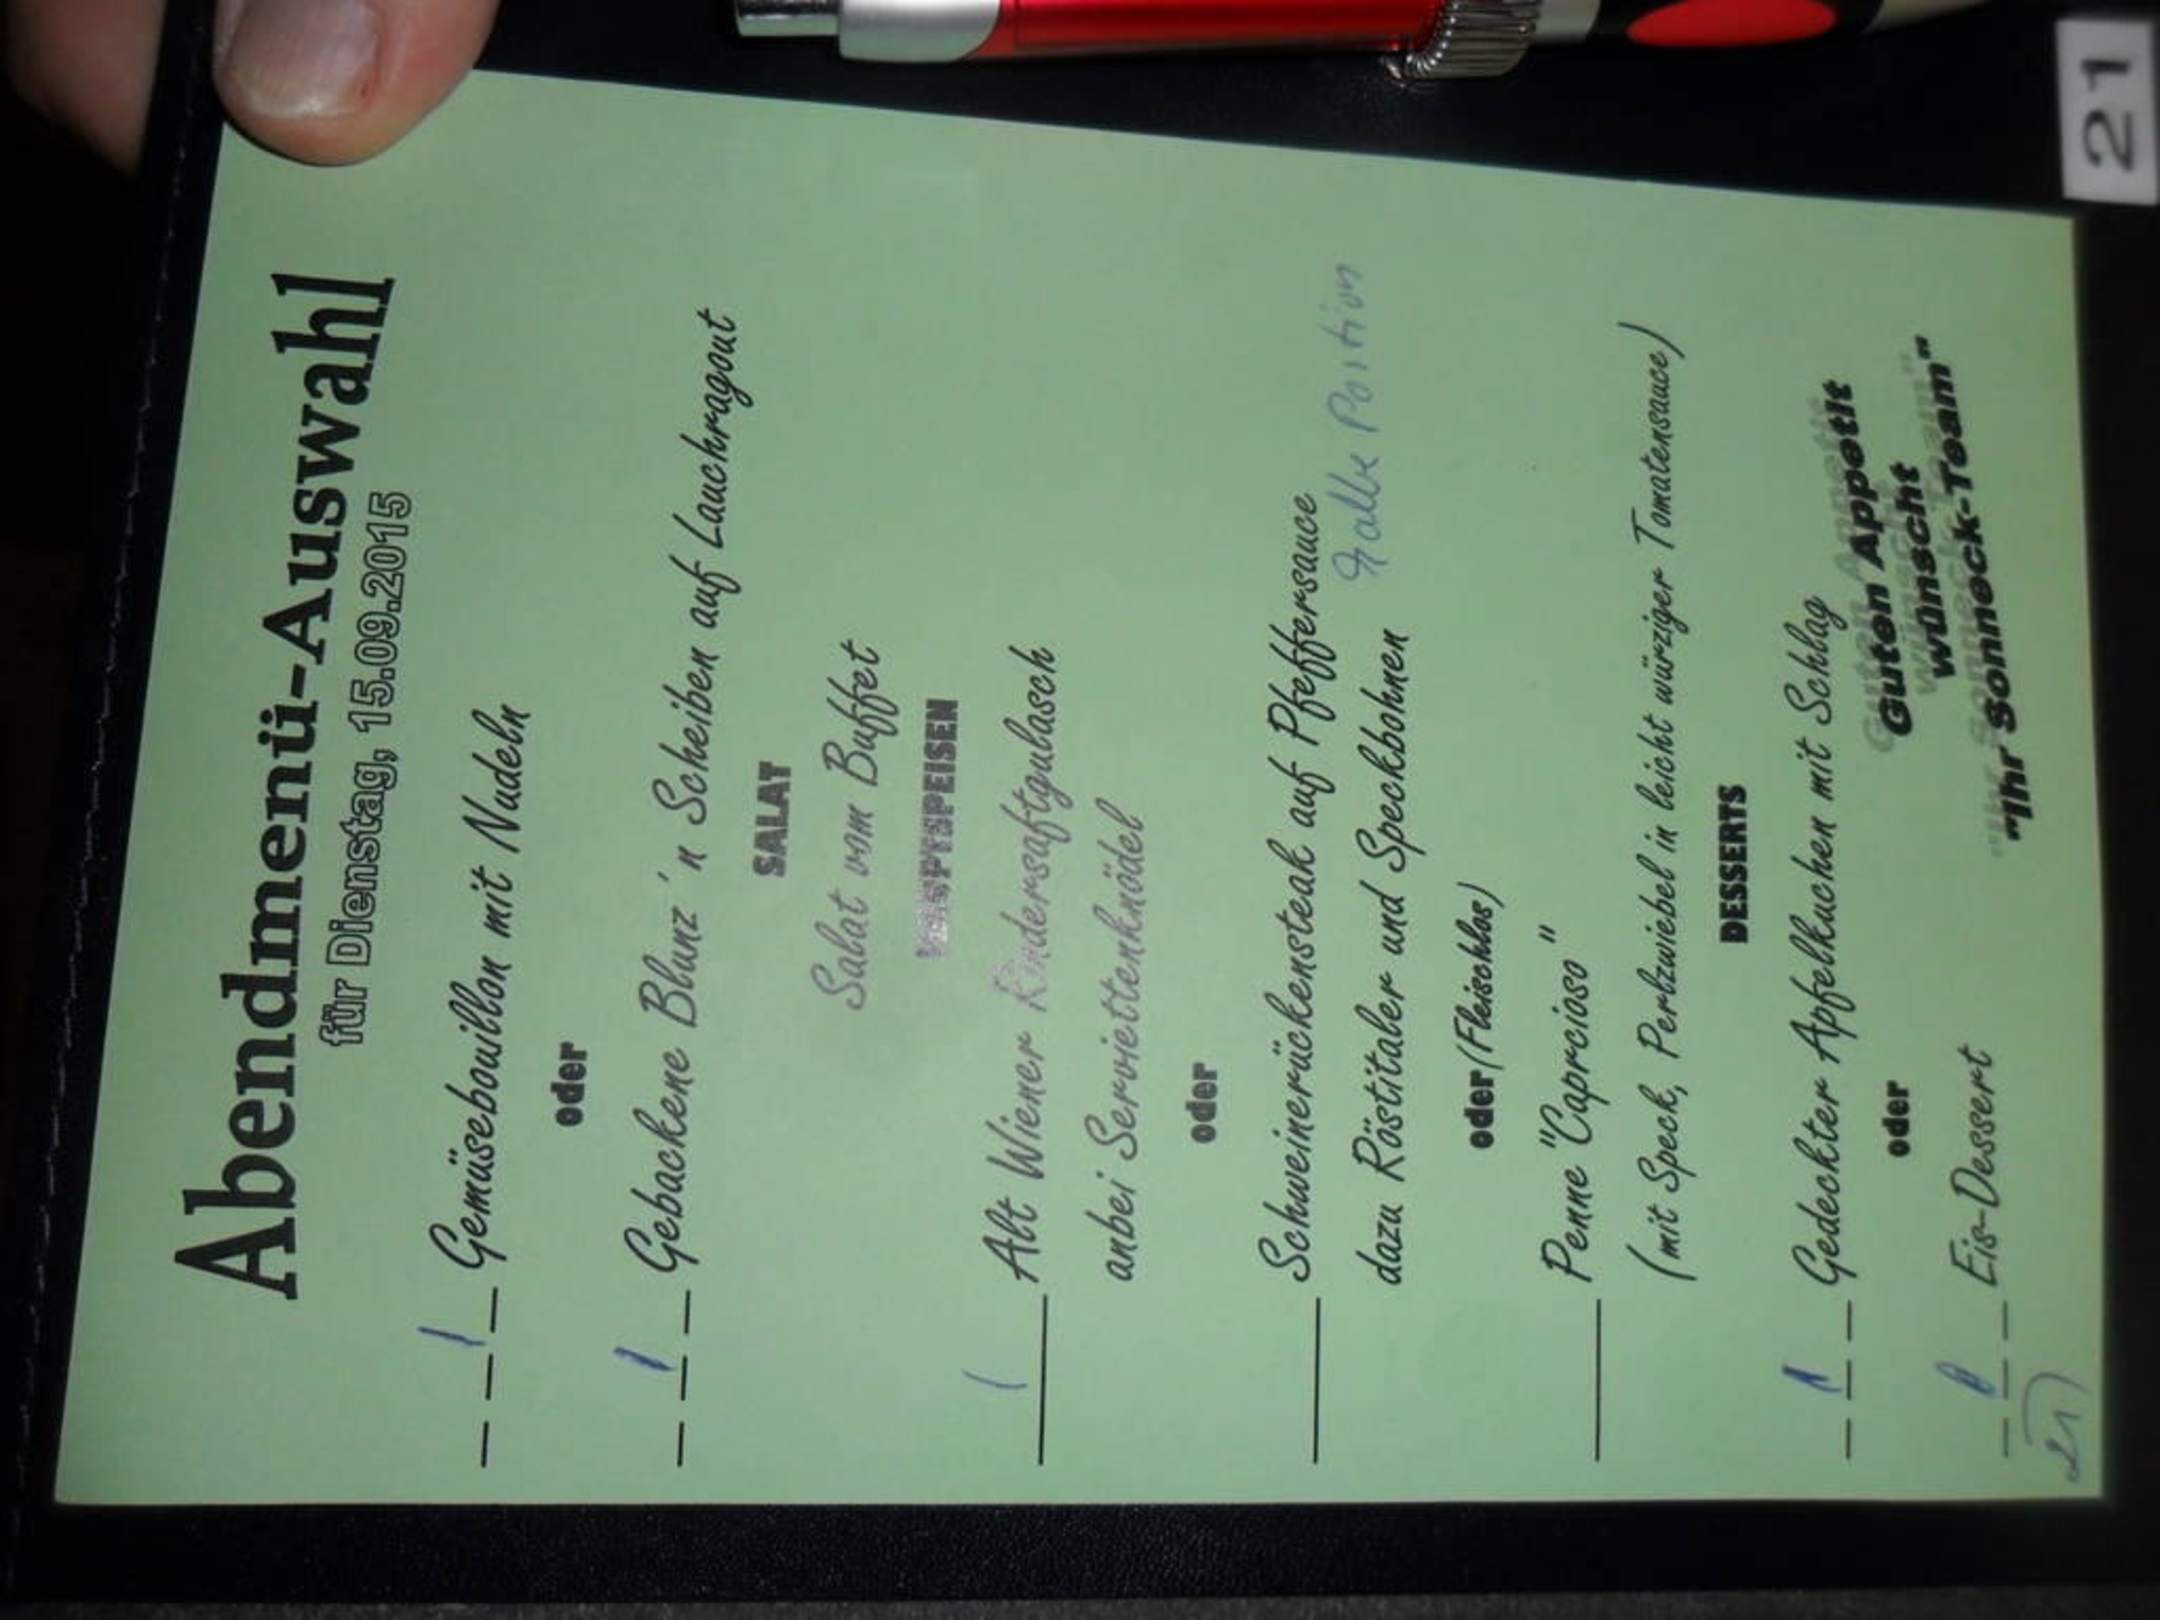 Abendmenü-Auswahl
für Dienstag, 15.09.2015
1 Gemüsebouillon mit Nudeln
oder
1 Gebackene Blunz´n Scheiben auf Lauchragout
SALAT
Salat vom Buffet
HAUPTSPEISEN
1 Alt Wiener Rindersaftgulasch
anbei Serviettenknödel
oder
Schweinerückensteak auf Pfeffersauce
dazu Röstitaler und Speckbohnen
Halbe Portion
oder (Fleischlos)
Penne "Caprcioso"
(mit Speck, Perlzwiebel in leicht würziger Tomatensauce)
DESSERTS
1 Gedeckter Apfelkuchen mit Schlag
oder
Eis-Dessert
Guten Appetit
wünscht
"Ihr Sonneck-Team"
21
21